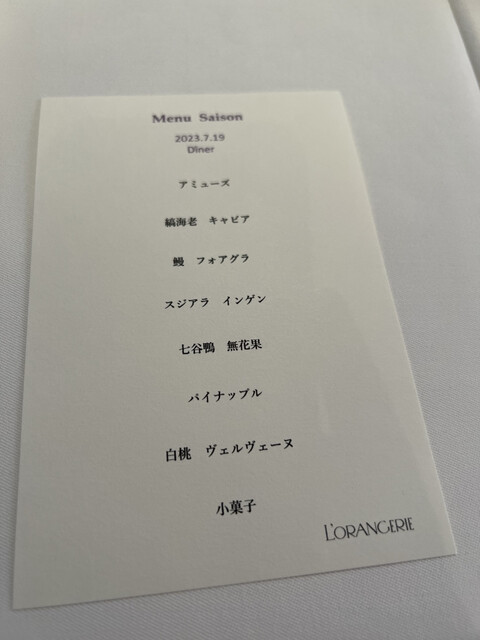 Menu Saison
2023.7.19
Dîner
アミューズ
縞海老　キャビア
鰻　フォアグラ
スジアラ　インゲン
七谷鴨　無花果
パイナップル
白桃　ヴェルヴェーヌ
小菓子
L'ORANGERIE